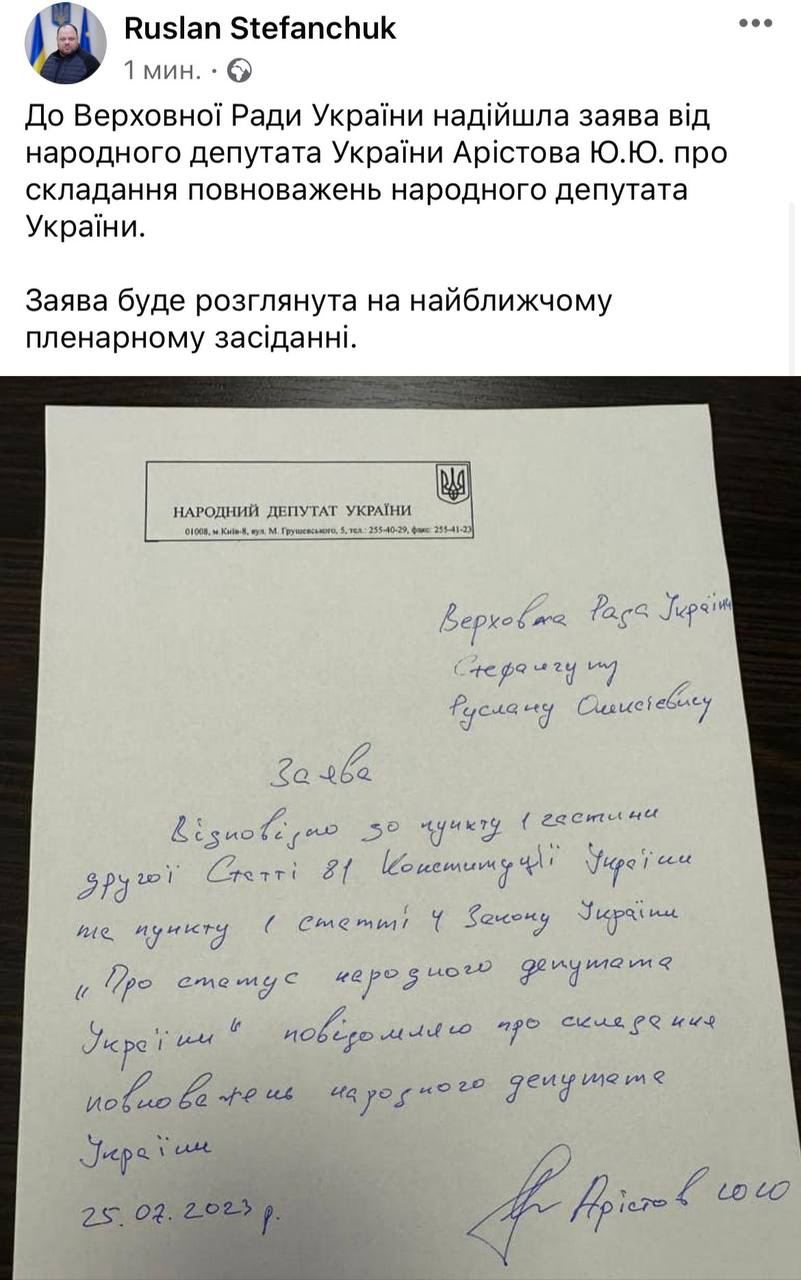 Ruslan Stefanchuk
1 мин.
До Верховної Ради України надійшла заява від
народного депутата України Арістова Ю.Ю. про
складання повноважень народного депутата
України.
Заява буде розглянута на найближчому
пленарному засіданні.
НАРОДНИЙ ДЕПУТАТ УКРАЇНИ
01008, м.Київ-8, вул. М. Грушевського, 5, тел.: 255-40-29, факс: 255-41-23
Верховна Рада України
Стефанчуку
Руслану Олексієвичу
Заява
Відповідно до пункту 1 частини
другої Статті 81 Конституції України
та пункту 1 статті 4 Закону України
„Про статус народного депутата
України“ повідомляю про складання
повноважень народного депутата
України
25.07.2023 р.
Арістов ЮЮ